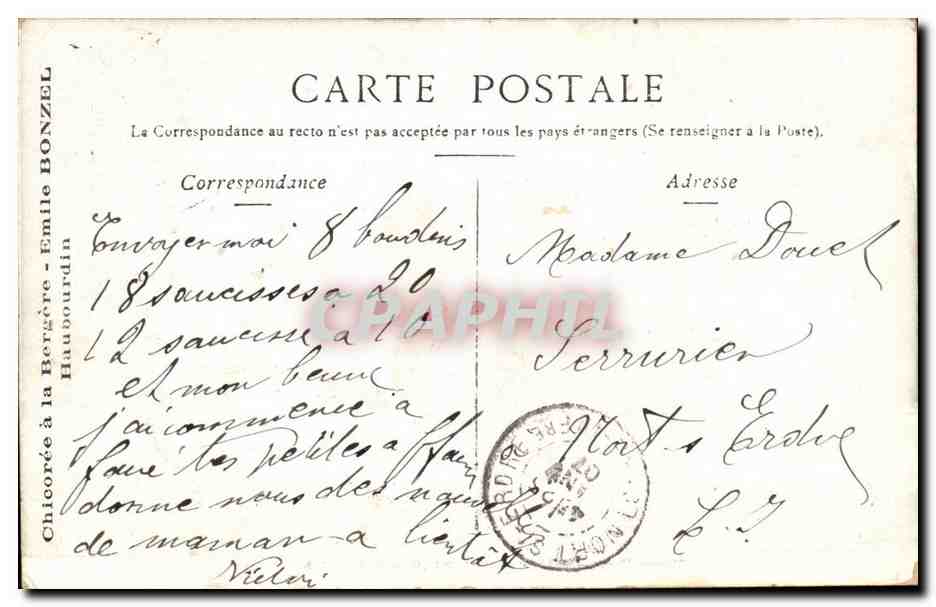 CARTE POSTALE
La Correspondance au recto n'est pas acceptée par tous les pays étrangers (Se renseigner à la Poste).
Chicorée à la Bergère - Emile BONZEL
Haubourdin
Correspondance
Envoyer moi 8 boudins
18 saucisses a 20
12 saucisse a 1
et mon
j'ai commencé a
tes petites affair
donne nous des
de maman a bientôt
Adresse
Madame Douet
Serrurier
Nort s Erdre
L. I.
NORT S ERDRE
07
CPAPHIL